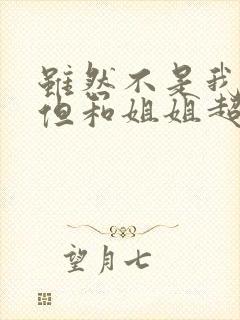 雖然不是我
但和姐姐超
望月七